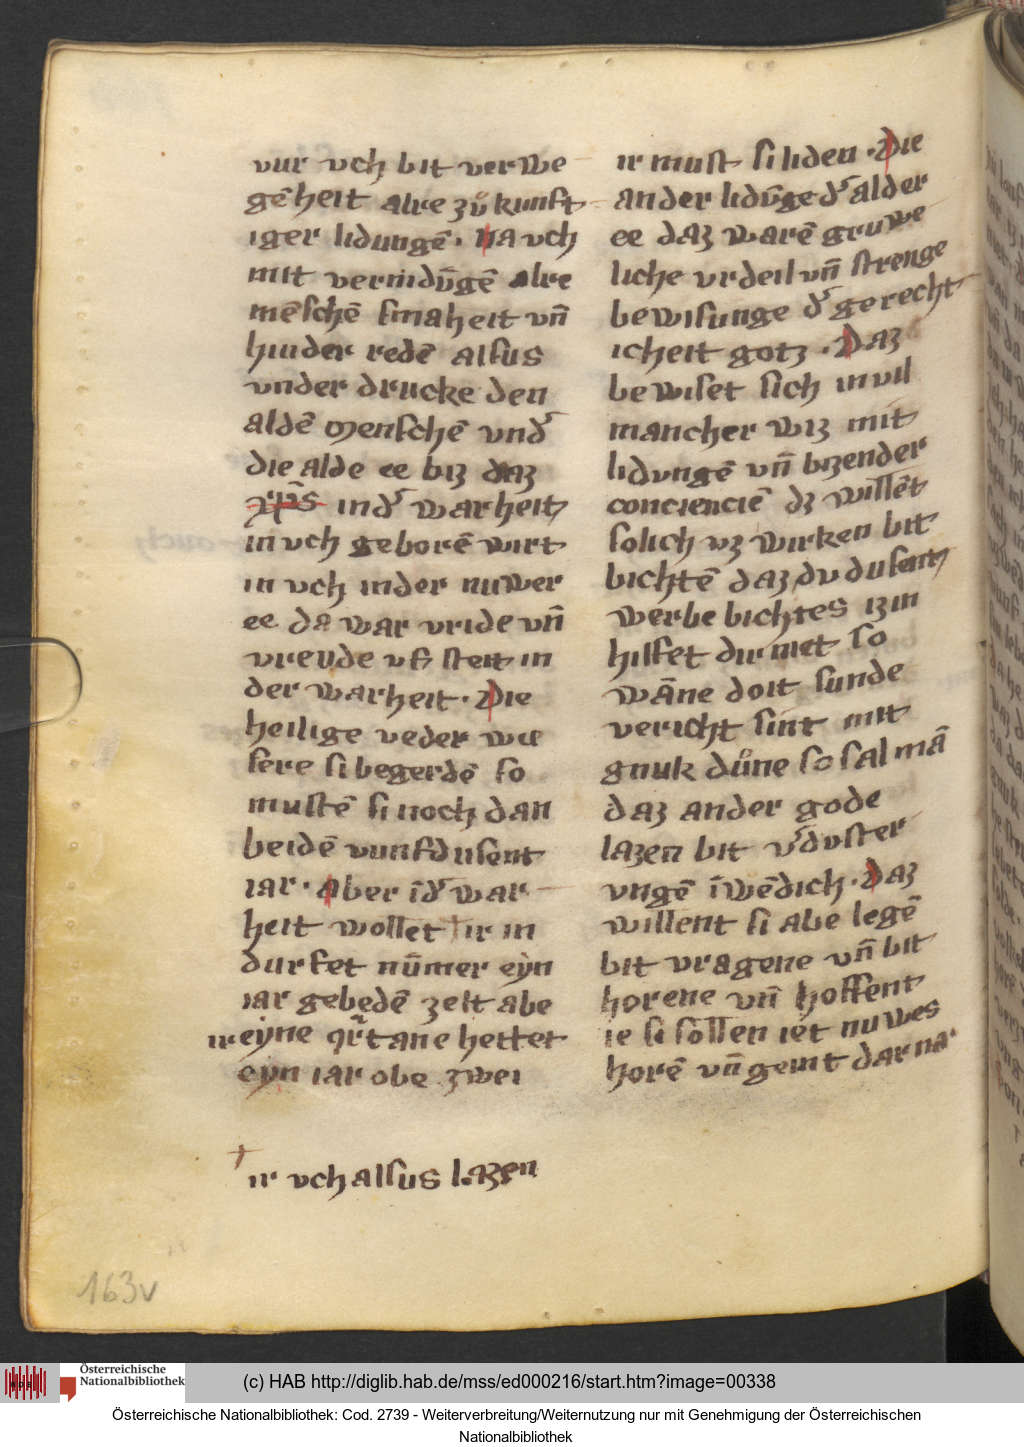 vur vch bit verwe
gēheit alre zuͦ kunft
iger lidungē · Na vch
mit vermidūgē alre
mēschē smaheit vn̄
hinder redē alsus
vnder drucke den
aldē menschē vnd᷎
die alde ee biz daz
xp̄s ind᷎ warheit
in vch geborē wirt
in vch inder nuwer
ee da war vride vn̄
vreude vf steit in
der warheit · Die
heilige veder wie
sere si begerdē so
mustē si noch dan
beidē vunfdusent
iar · Aber ī d᷎ war
heit wollet † ir in
durfet nūmer eẏn
iar gebedē zelt abe
ir eẏne q̄rtane hettet
eẏn iar obe zwei
† ir vch alsus lazen
ir must si liden · Die
ander lidūge d᷎ alder
ee daz warē gruwe
liche vrdeil vn̄ strenge
bewisunge d᷎ gerecht
icheit gotz · Daz
bewiset sich in vil
mancher wiz mit
lidungē vn̄ bizender
conciencie dz willēt
solich vz wirken bit
bichtē daz du dusent
werbe bichtes iz in
hilfet dir niet so
wāne doit sunde
vericht sint mit
gnuk duͦne so sal mā
daz ander gode
lazen bit v᷎duster
vngē ī wēdich · Daz
willent si abe legē
bit vragene vn̄ bit
horene vn̄ hoffent
ie si sollen iet nuwes
horē vn̄ gemt dar na·
163v
Österreichische
Nationalbibliothek
(c) HAB http://diglib.hab.de/mss/ed000216/start.htm?image=00338
Österreichische Nationalbibliothek: Cod. 2739 - Weiterverbreitung/Weiternutzung nur mit Genehmigung der Österreichischen
Nationalbibliothek